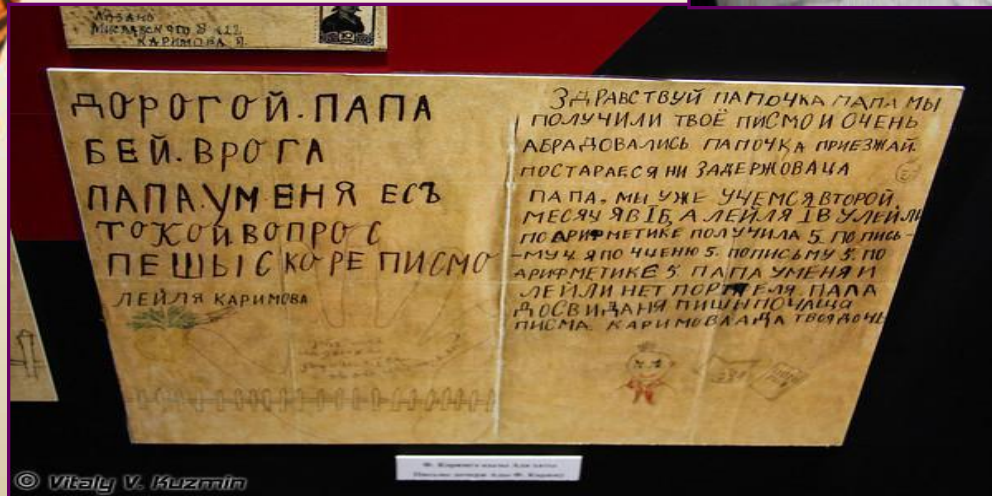 КАЗАНЬ
КАРИМОВА Я.
ДОРОГОЙ. ПАПА
БЕЙ. ВРОГА
ПАПА. УМЕНЯ ЕСЪ
ТОКОЙ ВОПРОС
ПЕШЫ СКОРЕ ПИСМО
ЛЕЙЛЯ КАРИМОВА
ЗДРАВСТВУЙ ПАПОЧКА ПАПА МЫ
ПОЛУЧИЛИ ТВОЁ ПИСМО И ОЧЕНЬ
АБРАДОВАЛИСЬ ПАПОЧКА ПРИЕЗЖАЙ.
ПОСТАРАЕСЯ НИ ЗАДЕРЖОВАЦА
ПАПА. МЫ УЖЕ УЧЕМСЯ ВТОРОЙ
МЕСЯЧ Я В IБ, А ЛЕЙЛЯ IВ У ЛЕЙЛИ
ПО АРИФМЕТИКЕ ПОЛУЧИЛА 5. ПО ПИСЬ-
-МУ 4 Я ПО ЧИЕНЮ 5. ПОПИСЬМУ 5. ПО
АРИФМЕТИКЕ 5 ПАПА УМЕНЯ И
ЛЕЙЛИ НЕТ ПОРТФЕЛЯ. ПАПА
ДОСВИДАНЯ ПИШЫ ПОЧАЩА
ПИСМА. КАРИМОВА АДА ТВОЯ ДОЧЬ
© Vitaly V. Kuzmin